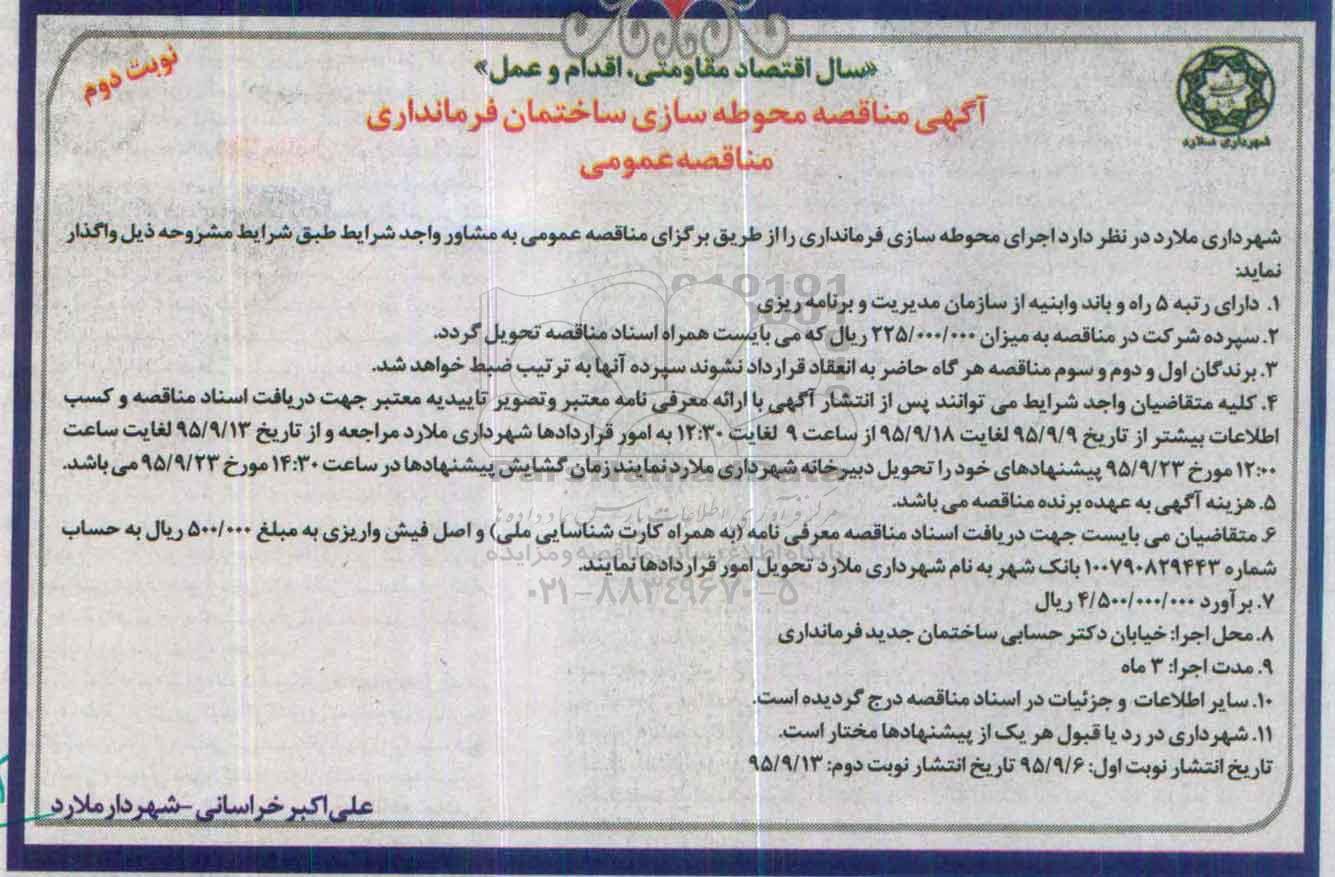 نوبت دوم
«سال اقتصاد مقاومتی، اقدام و عمل»
آگهی مناقصه محوطه سازی ساختمان فرمانداری
مناقصه عمومی
شهرداری ملارد
شهرداری ملارد در نظر دارد اجرای محوطه سازی فرمانداری را از طریق برگزای مناقصه عمومی به مشاور واجد شرایط طبق شرایط مشروحه ذیل واگذار
نماید:
۱. دارای رتبه ۵ راه و باند وابنیه از سازمان مدیریت و برنامه ریزی
۲. سپرده شرکت در مناقصه به میزان ۲۲۵/۰۰۰/۰۰۰ ریال که می بایست همراه اسناد مناقصه تحویل گردد.
۳. برندگان اول و دوم و سوم مناقصه هر گاه حاضر به انعقاد قرارداد نشوند سپرده آنها به ترتیب ضبط خواهد شد.
۴. کلیه متقاضیان واجد شرایط می توانند پس از انتشار آگهی با ارائه معرفی نامه معتبر وتصویر تاییدیه معتبر جهت دریافت اسناد مناقصه و کسب
اطلاعات بیشتر از تاریخ ۹۵/۹/۹ لغایت ۹۵/۹/۱۸ از ساعت ۹ لغایت ۱۲:۳۰ به امور قراردادها شهرداری ملارد مراجعه و از تاریخ ۹۵/۹/۱۳ لغایت ساعت
۱۲:۰۰ مورخ ۹۵/۹/۲۳ پیشنهادهای خود را تحویل دبیرخانه شهرداری ملارد نمایند زمان گشایش پیشنهادها در ساعت ۱۴:۳۰ مورخ ۹۵/۹/۲۳ می باشد.
۵. هزینه آگهی به عهده برنده مناقصه می باشد.
۶. متقاضیان می بایست جهت دریافت اسناد مناقصه معرفی نامه (به همراه کارت شناسایی ملی) و اصل فیش واریزی به مبلغ ۵۰۰/۰۰۰ ریال به حساب
شماره ۱۰۰۷۹۰۸۲۹۴۴۳ بانک شهر به نام شهرداری ملارد تحویل امور قراردادها نمایند.
۷. برآورد ۴/۵۰۰/۰۰۰/۰۰۰ ریال
۸. محل اجرا: خیابان دکتر حسابی ساختمان جدید فرمانداری
۹. مدت اجرا: ۳ ماه
۱۰. سایر اطلاعات و جزئیات در اسناد مناقصه درج گردیده است.
۱۱. شهرداری در رد یا قبول هر یک از پیشنهادها مختار است.
تاریخ انتشار نوبت اول: ۹۵/۹/۶ تاریخ انتشار نوبت دوم: ۹۵/۹/۱۳
علی اکبر خراسانی -شهردار ملارد
ParsNamadData
پایگاه اطلاع رسانی مناقصه و مزایده
۰۲۱-۸۸۳۴۹۶۷۰-۵